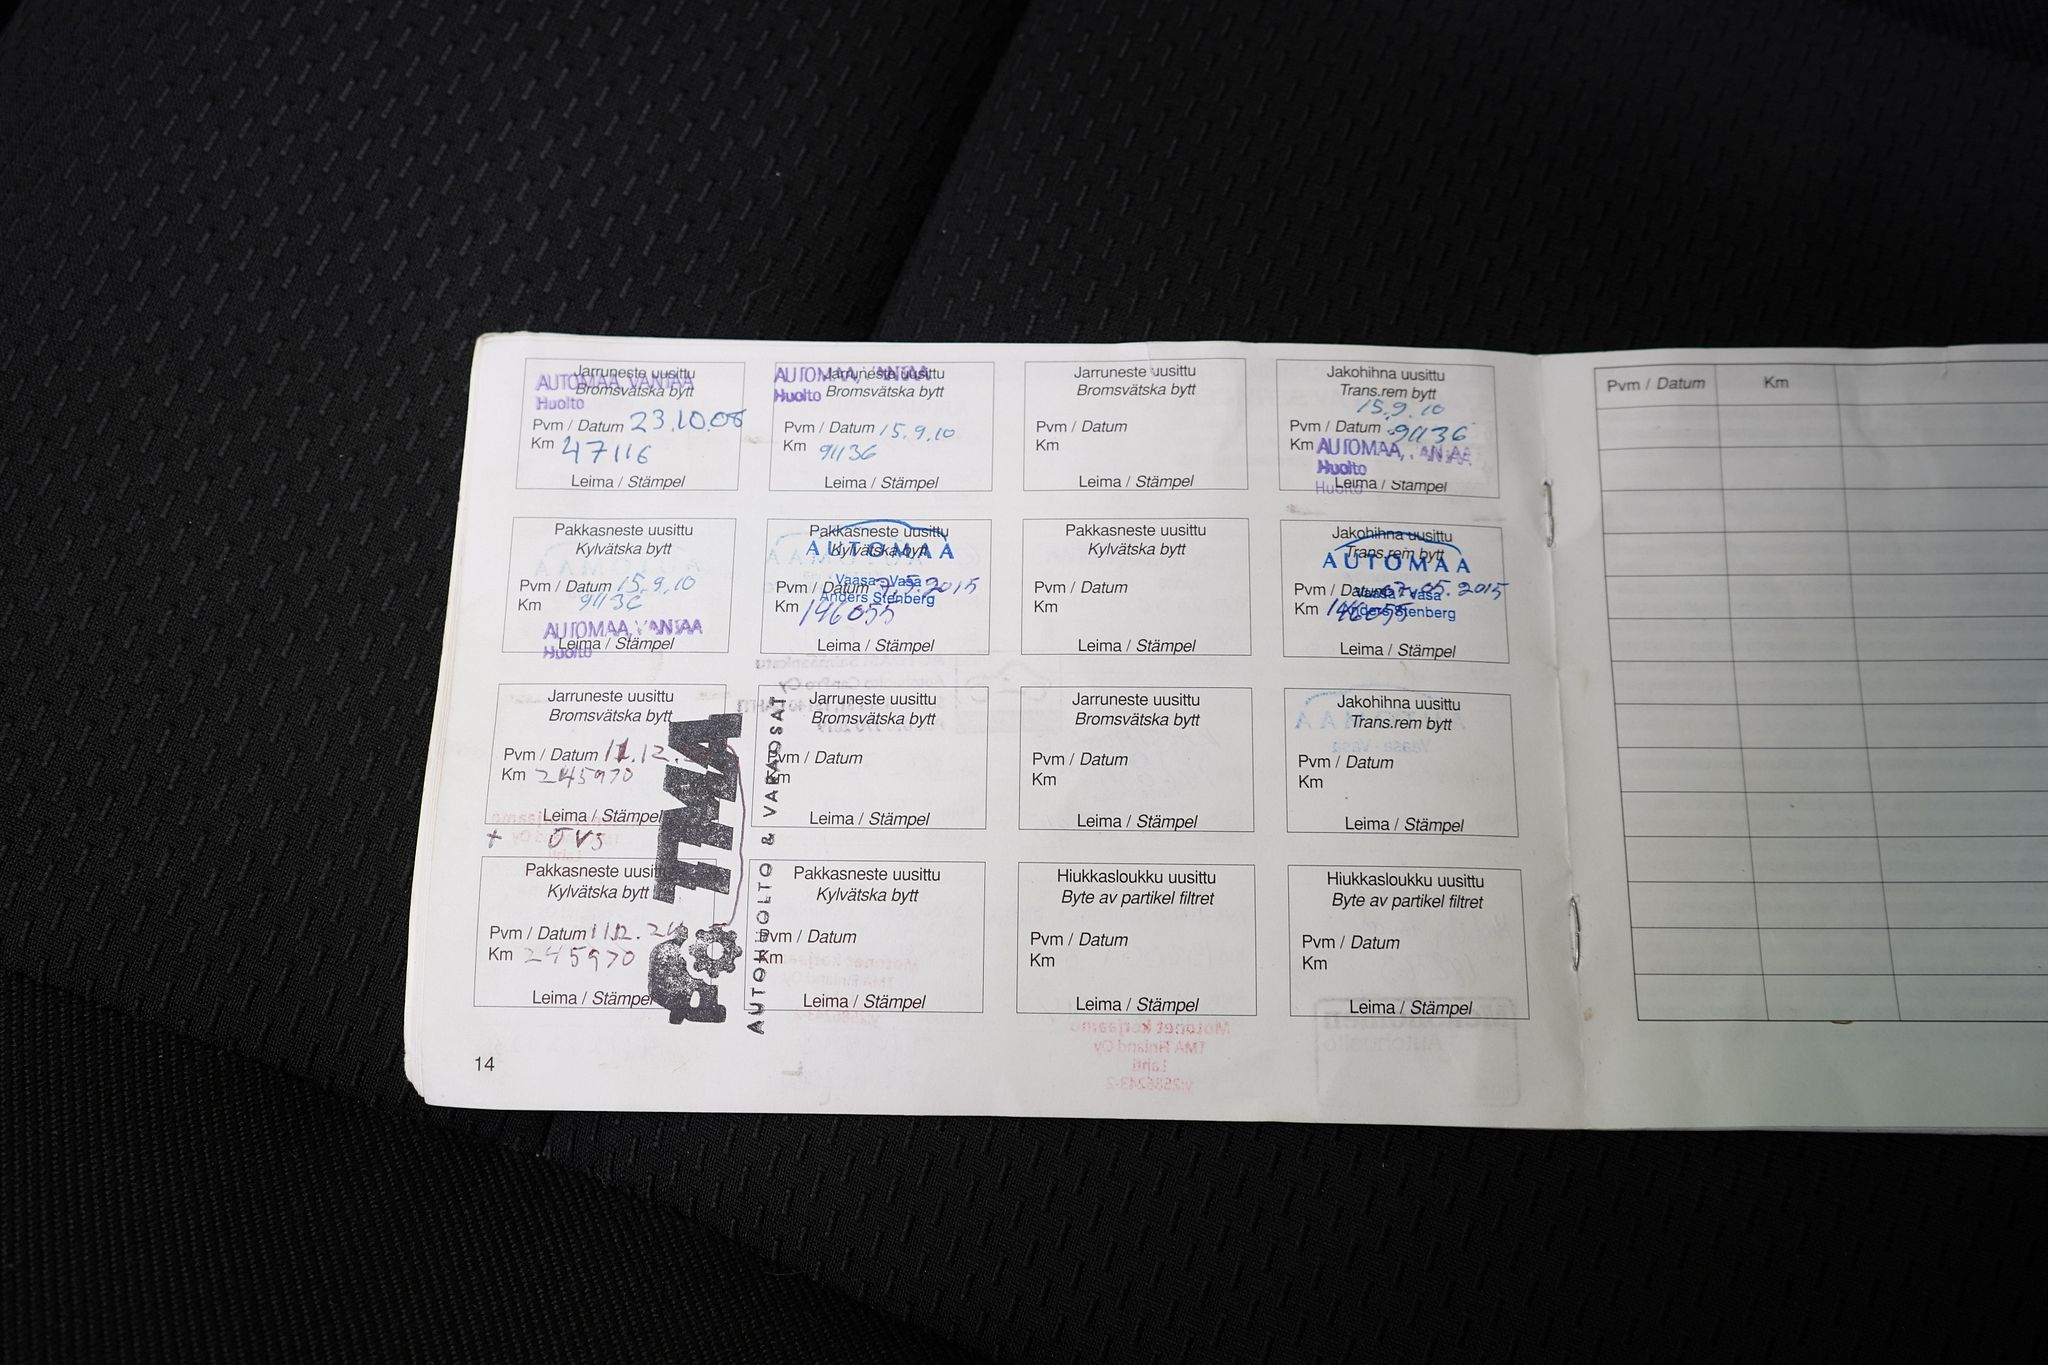 Jarruneste uusittu
Bromsvätska bytt
AUTOMAA, VANTAA
Huolto
Pvm / Datum 23.10.08
Km 47116
Leima / Stämpel
Jarruneste uusittu
Bromsvätska bytt
AUTOMAA, VANTAA
Huolto
Pvm / Datum 15.9.10
Km 91136
Leima / Stämpel
Jarruneste uusittu
Bromsvätska bytt
Pvm / Datum
Km
Leima / Stämpel
Jakohihna uusittu
Trans.rem bytt
15.9.10
Pvm / Datum 91136
Km
AUTOMAA, VANTAA
Huolto
Leima / Stämpel
Pakkasneste uusittu
Kylvätska bytt
Pvm / Datum 15.9.10
Km 91136
AUTOMAA, VANTAA
Huolto
Leima / Stämpel
Pakkasneste uusittu
Kylvätska bytt
AUTOMAA
Vaasa - Vasa
Anders Stenberg
Pvm / Datum 7.5.2015
Km 146055
Leima / Stämpel
Pakkasneste uusittu
Kylvätska bytt
Pvm / Datum
Km
Leima / Stämpel
Jakohihna uusittu
Trans.rem bytt
AUTOMAA
Vaasa - Vasa
Anders Stenberg
Pvm / Datum 07.05.2015
Km 146055
Leima / Stämpel
Jarruneste uusittu
Bromsvätska bytt
Pvm / Datum 11.12.
Km 245970
Leima / Stämpel
+ ÖVS
Jarruneste uusittu
Bromsvätska bytt
Pvm / Datum
Km
Leima / Stämpel
Jarruneste uusittu
Bromsvätska bytt
Pvm / Datum
Km
Leima / Stämpel
Jakohihna uusittu
Trans.rem bytt
Pvm / Datum
Km
Leima / Stämpel
Pakkasneste uusittu
Kylvätska bytt
Pvm / Datum 11.12.24
Km 245970
Leima / Stämpel
TMA
AUTOHUOLTO & VARAOSAT
Pakkasneste uusittu
Kylvätska bytt
Pvm / Datum
Km
Leima / Stämpel
Hiukkasloukku uusittu
Byte av partikel filtret
Pvm / Datum
Km
Leima / Stämpel
Hiukkasloukku uusittu
Byte av partikel filtret
Pvm / Datum
Km
Leima / Stämpel
14
Pvm / Datum
Km